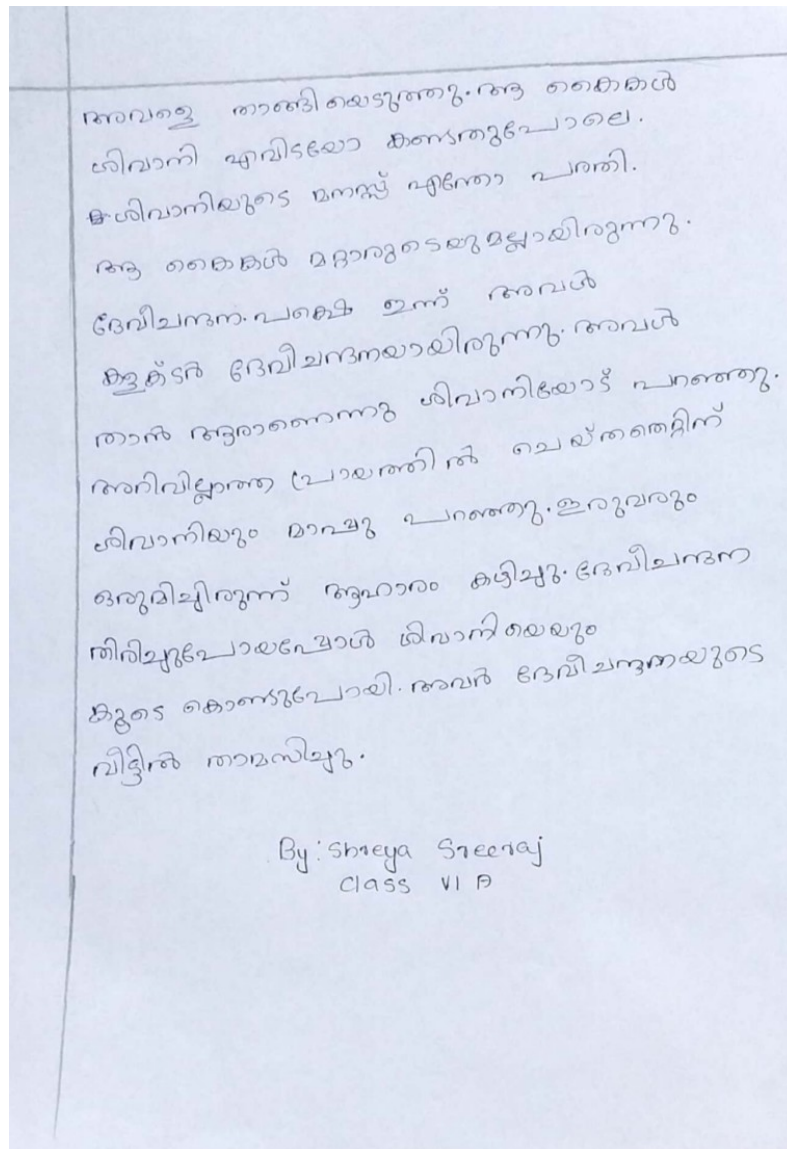 അവളെ താങ്ങിയെടുത്തു. ആ കൈകൾ
ശിവാനി എവിടയോ കണ്ടതുപോലെ.
ശിവാനിയുടെ മനസ്സ് എന്തോ പരതി.
ആ കൈകൾ മറ്റാരുടെയുമല്ലായിരുന്നു.
ദേവീചന്ദന. പക്ഷെ ഇന്ന് അവൾ
കളക്ടർ ദേവീചന്ദനയായിരുന്നു. അവൾ
താൻ ആരാണെന്നു ശിവാനിയോട് പറഞ്ഞു.
അറിവില്ലാത്ത പ്രായത്തിൽ ചെയ്തതെറ്റിന്
ശിവാനിയും മാപ്പു പറഞ്ഞു. ഇരുവരും
ഒരുമിച്ചിരുന്ന് ആഹാരം കഴിച്ചു. ദേവീചന്ദന
തിരിച്ചുപോയപ്പോൾ ശിവാനിയെയും
കൂടെ കൊണ്ടുപോയി. അവർ ദേവീചന്ദനയുടെ
വീട്ടിൽ താമസിച്ചു.
By: Shreya Sreeraj
Class VI A